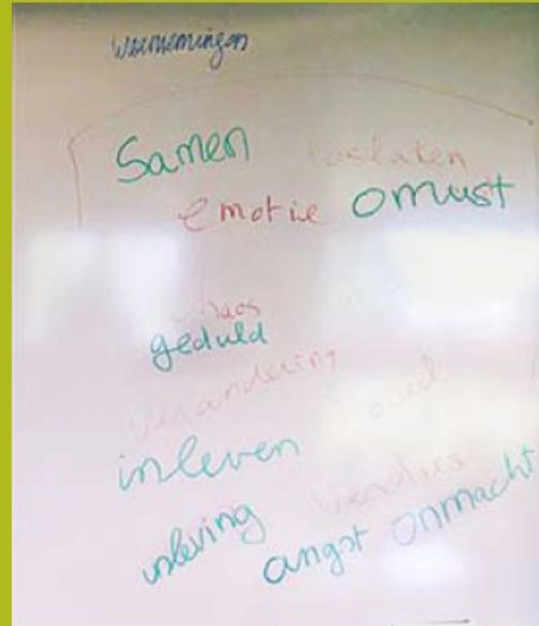 waarnemingen
Samen loslaten
emotie onrust
chaos
geduld
verandering
inleven
inleving verdries
angst onmacht